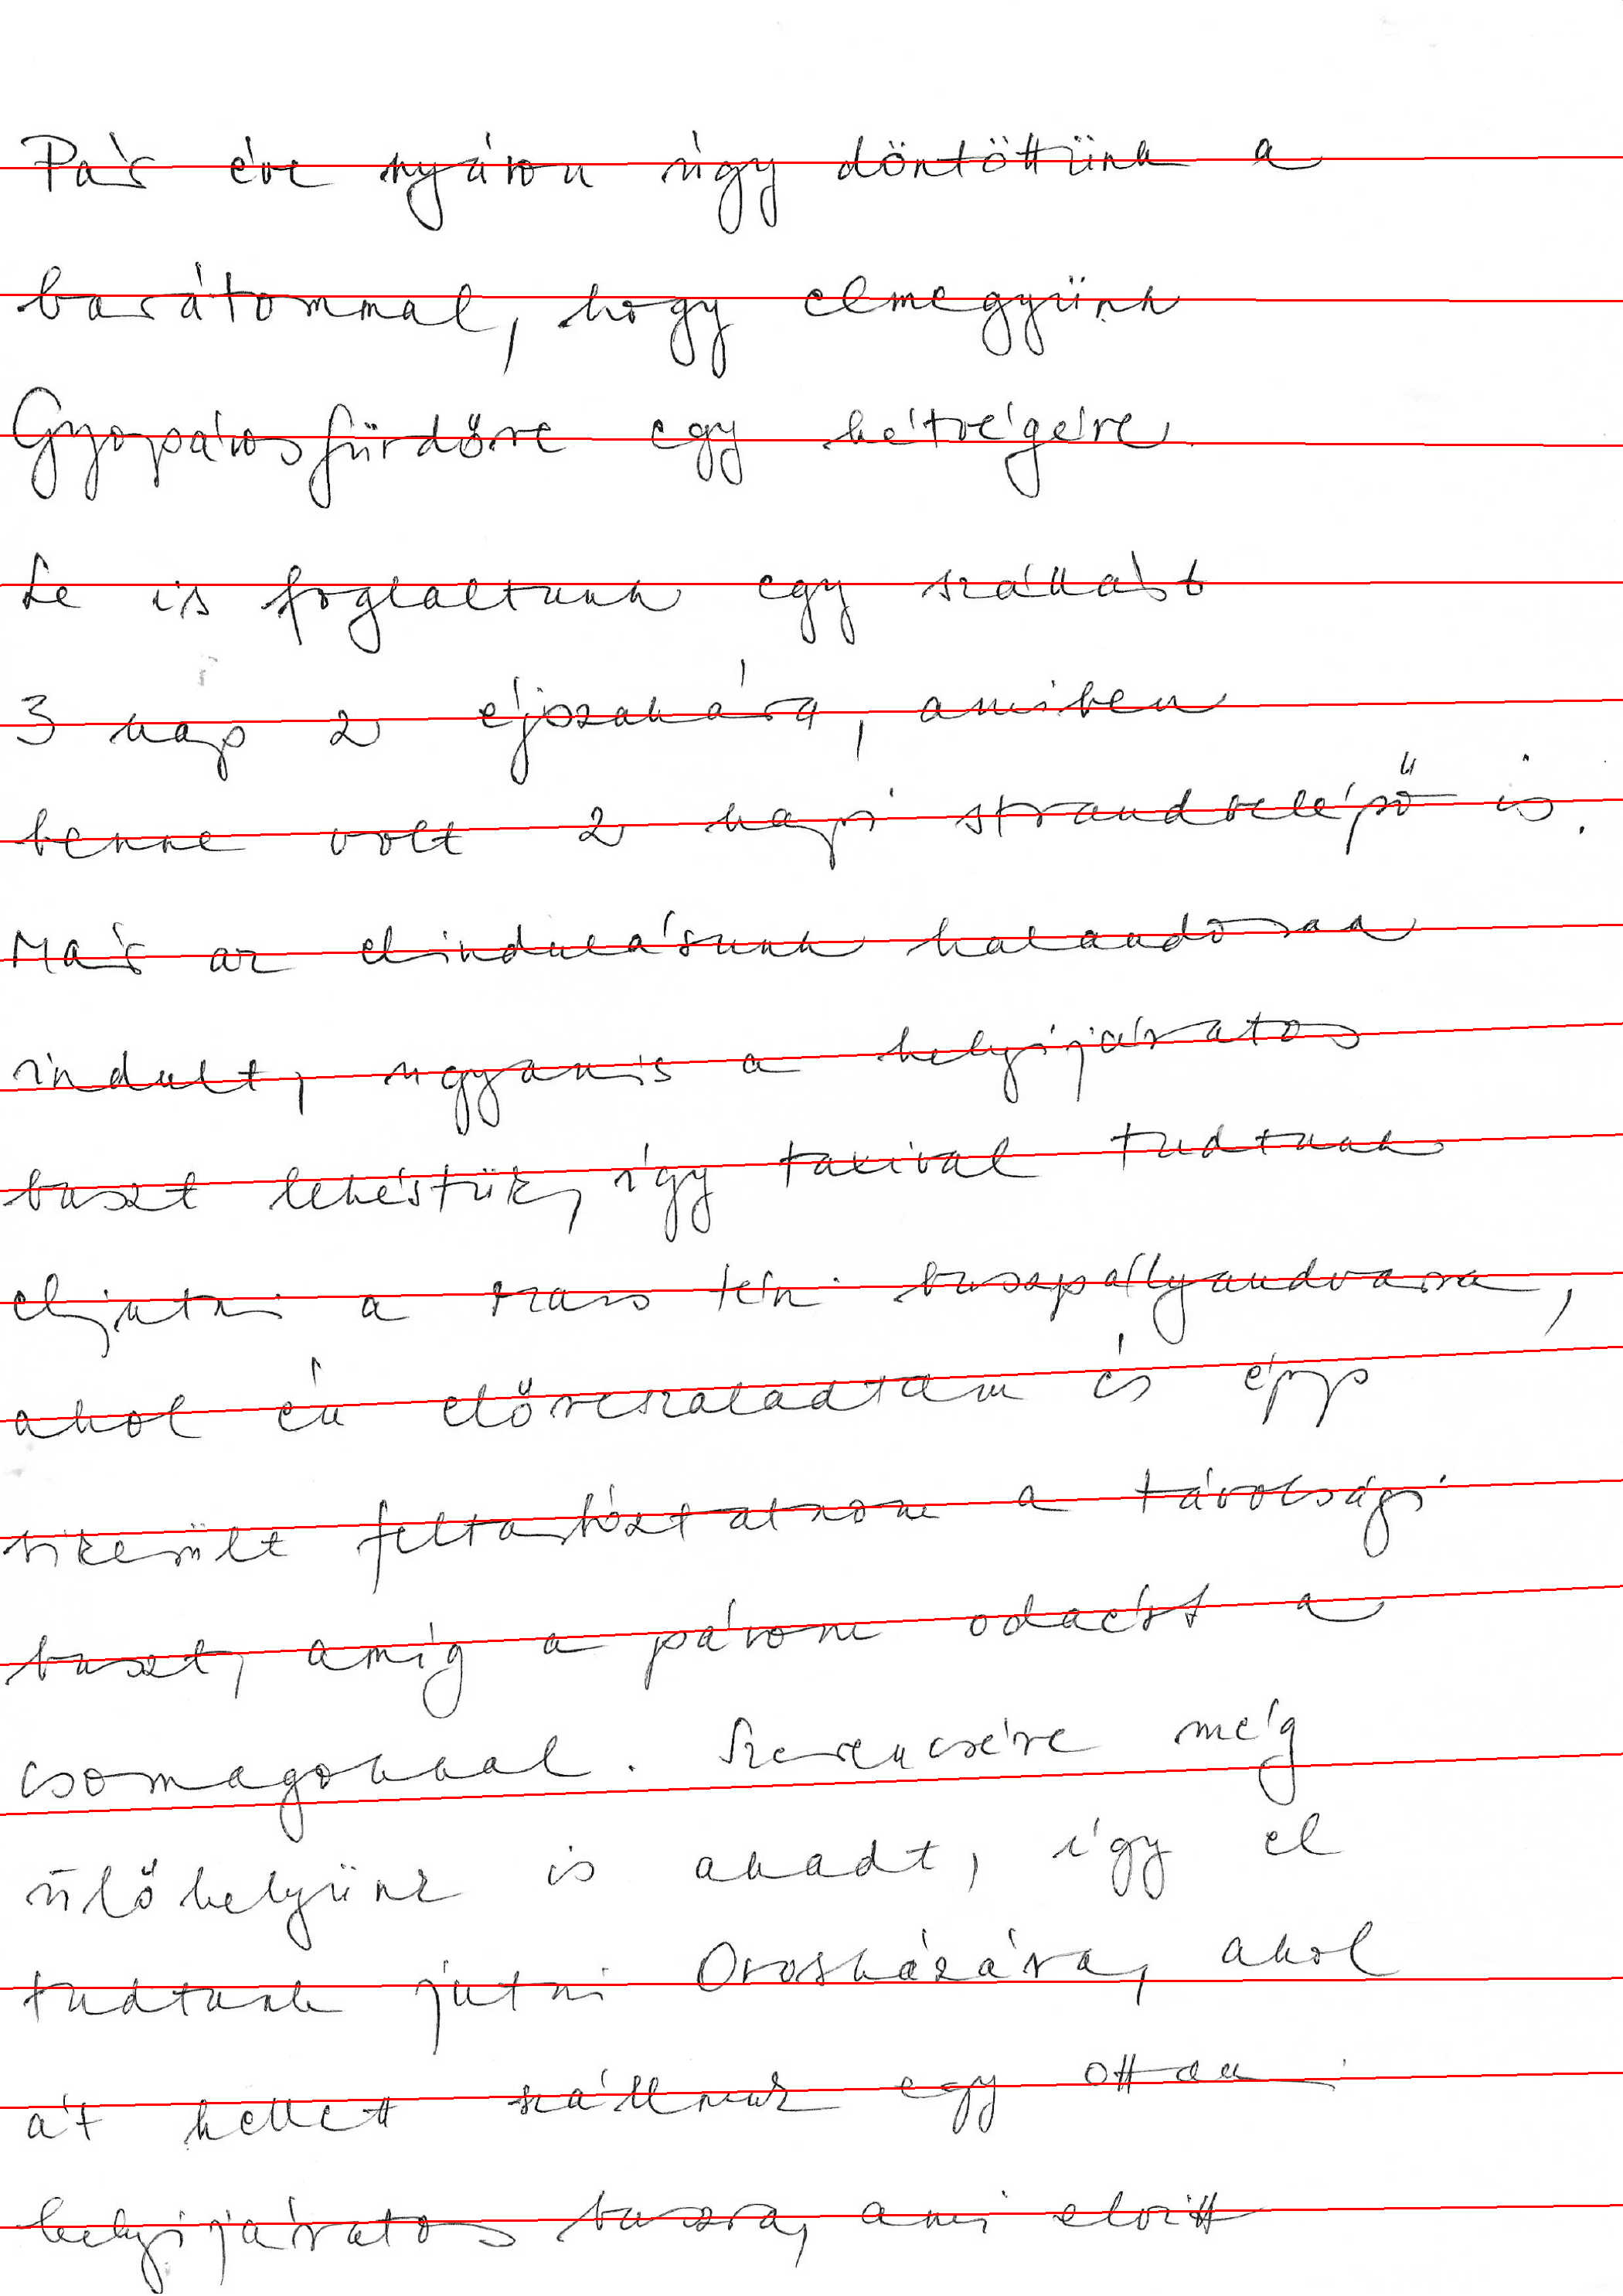 Pár éve nyáron úgy döntöttünk a
barátommal, hogy elmegyünk
Gyopárosfürdőre egy hétvégére.
Le is foglaltunk egy szállást
3 nap 2 éjszakára, amiben
benne volt 2 napi strandbelépő is.
Már az elindulásunk kalandosan
indult, ugyanis a helyijáratos
buszt lekéstük, így taxival tudtunk
eljutni a Mars téri buszpályaudvarra,
ahol én előreszaladtam és épp
sikerült feltartóztatnom a távolsági
buszt, amíg a párom odaért a
csomagokkal. Szerencsére még
ülőhelyünk is akadt, így el
tudtunk jutni Orosházára, ahol
át kellett szállnunk egy ottani
helyijáratos buszra, ami elvitt